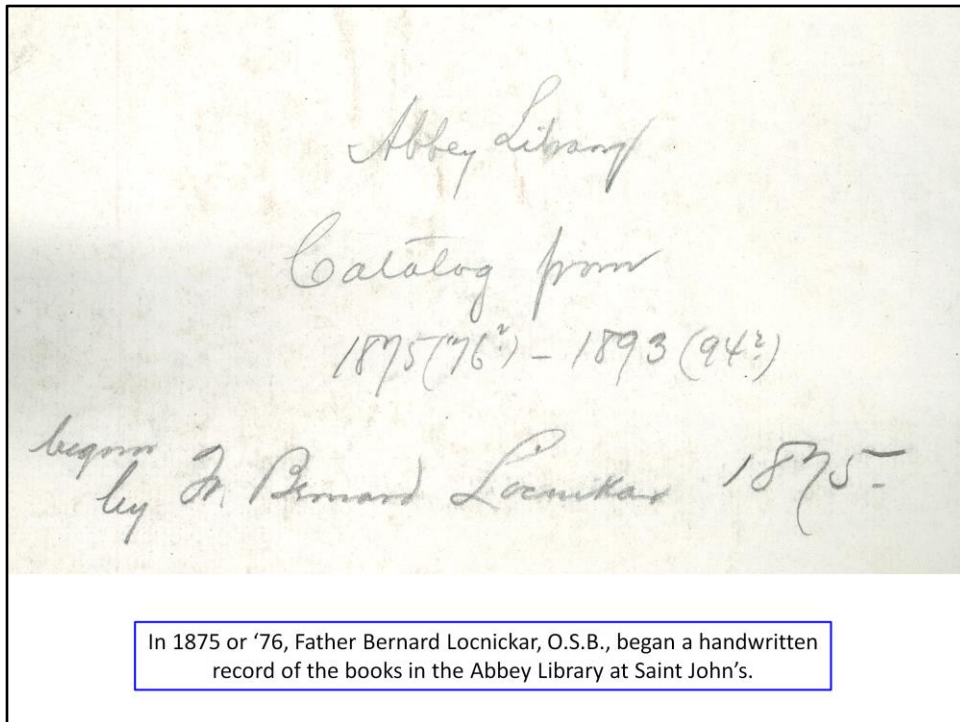 Abbey Library
Catalog from
1875 ('76?) – 1893 (94?)
begun
by Fr. Bernard Locnikar 1875-
In 1875 or ‘76, Father Bernard Locnickar, O.S.B., began a handwritten
record of the books in the Abbey Library at Saint John’s.